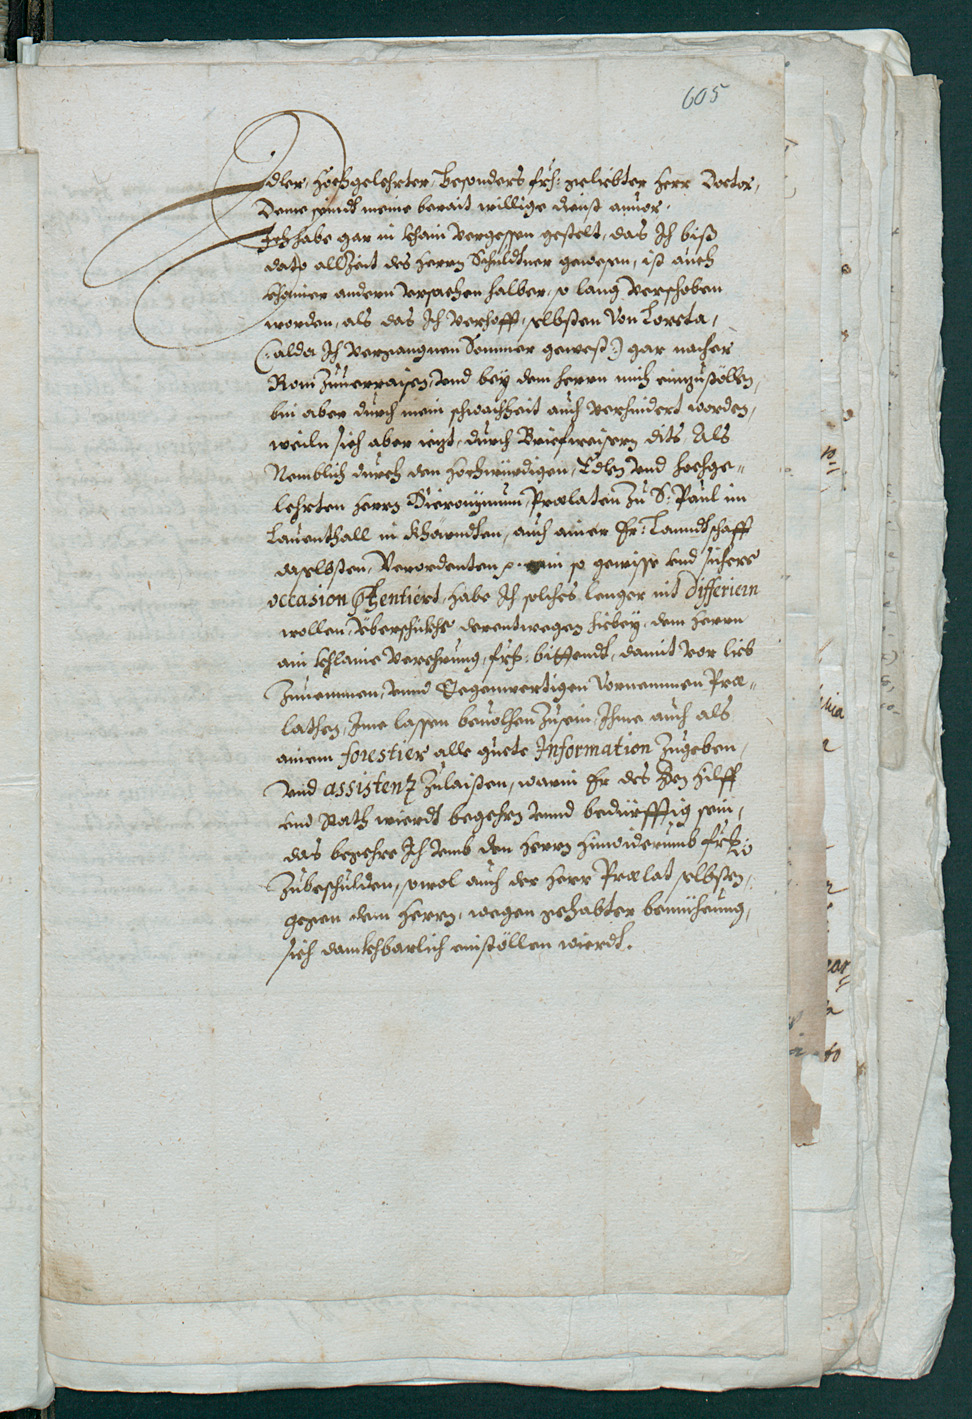 605
Edler, Hochgelehrter, besonders frh: geliebter Herr Doctor,
Deme seindt meine berait willige dienst anuor.
Ich habe gar in khain vergessen gestelt, das Ich biß
dato allZeit des Herrn Schuldtner gewesen, ist auch
khainer andern vrsachen halber, so lang verschoben
worden, als das Ich verhofft, selbsten von Loreta,
(: alda Ich vergangnen Sommer gewest :) gar nacher
Rom Zuuerraisen, vnd bey dem Herrn mich einzustöllen,
bin aber durch mein schwachheit auch verhindert worden,
weiln sich aber iezt, durch Brieffweisern dits Als
Nemblich durch den Hochwürdigen, Edlen vnd Hochge=
lehrten Herrn Hieronÿmum Prælaten Zu S: Paul im
Lauenthall in Khärndten, auch ainer Er: Lanndtschafft
daselbsten, Verordenten ein so gewisse vnd sichere
occasion præsentiert, habe Ich solches lenger nit differiern
wollen, Vberschickhe derentwegen hiebey, dem Herrn
ain khlaine Verehrung, frh: bittendt, damit vor lieb
Zunemmen, vnnd Gegenwertigen Vornemmen Præ=
laten, Ime lassen beuolhen Zusein, Ihme auch als
ainem forestier alle guete Information Zugeben,
vnd assistenz Zulaisten, warin Er des Hilff
vnd Rath wierdt begehrn vnnd bedürfftig sein,
das begehre Ich vmb den Herrn hinwiderumb frh:
Zubeschulden, sowol auch der Herr Prælat selbsten,
gegen dem Herrn, wegen gehabter bemüehung,
sich danckhbarlich einstöllen wierdt.